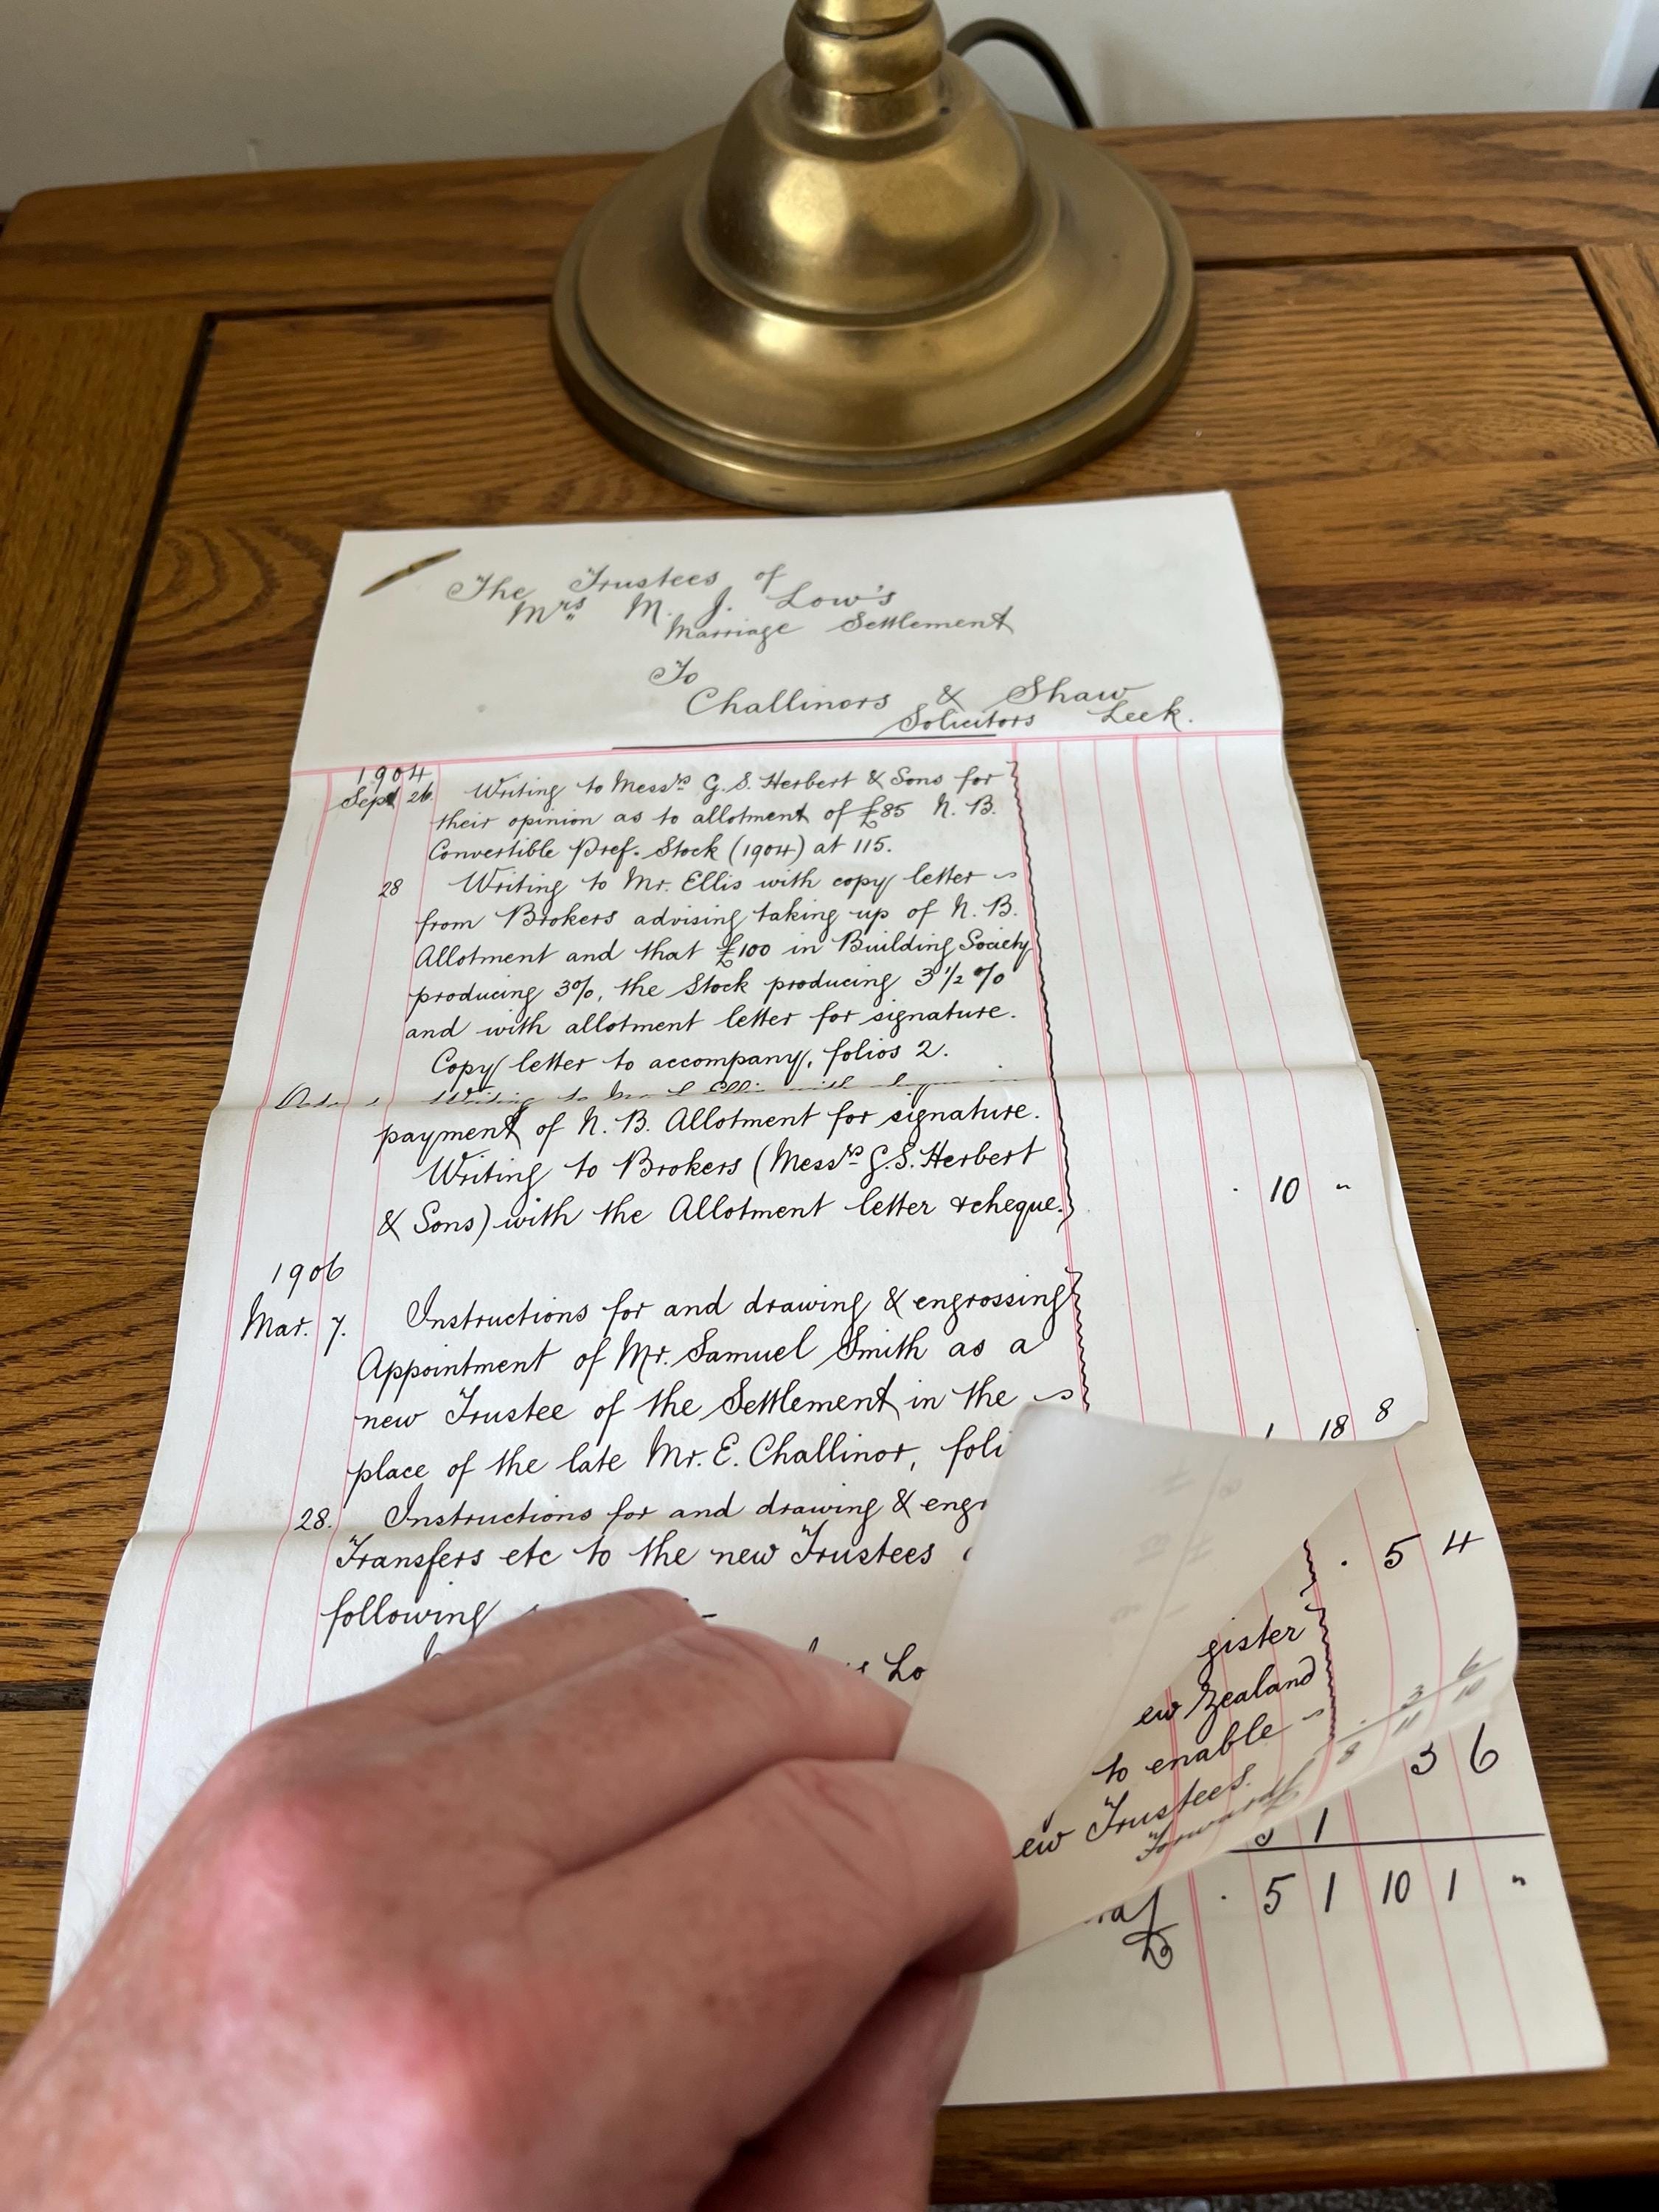 The Trustees of
Mrs M. J. Low's
Marriage Settlement
To
Challinors & Shaw
Solicitors Leek.
1904
Sept 26 Writing to Messrs G. S. Herbert & Sons for
their opinion as to allotment of £85 N. B.
Convertible Pref. Stock (1904) at 115.
28 Writing to Mr. Ellis with copy letter
from Brokers advising taking up of N. B.
Allotment and that £100 in Building Society
producing 3%, the Stock producing 3 1/2 %
and with allotment letter for signature.
Copy letter to accompany, folios 2.
Writing to
payment of N. B. Allotment for signature.
Writing to Brokers (Messrs G. S. Herbert
& Sons) with the Allotment letter & cheque. . 10 "
1906
Mar. 7. Instructions for and drawing & engrossing
Appointment of Mr. Samuel Smith as a
new Trustee of the Settlement in the
place of the late Mr. E. Challinor, foli 1 18 8
28. Instructions for and drawing & engr
Transfers etc to the new Trustees
following
Lo
. 5 4
gister
ew Zealand
to enable
ew Trustees.
Forward
3 6
. 5 1 10 1 "